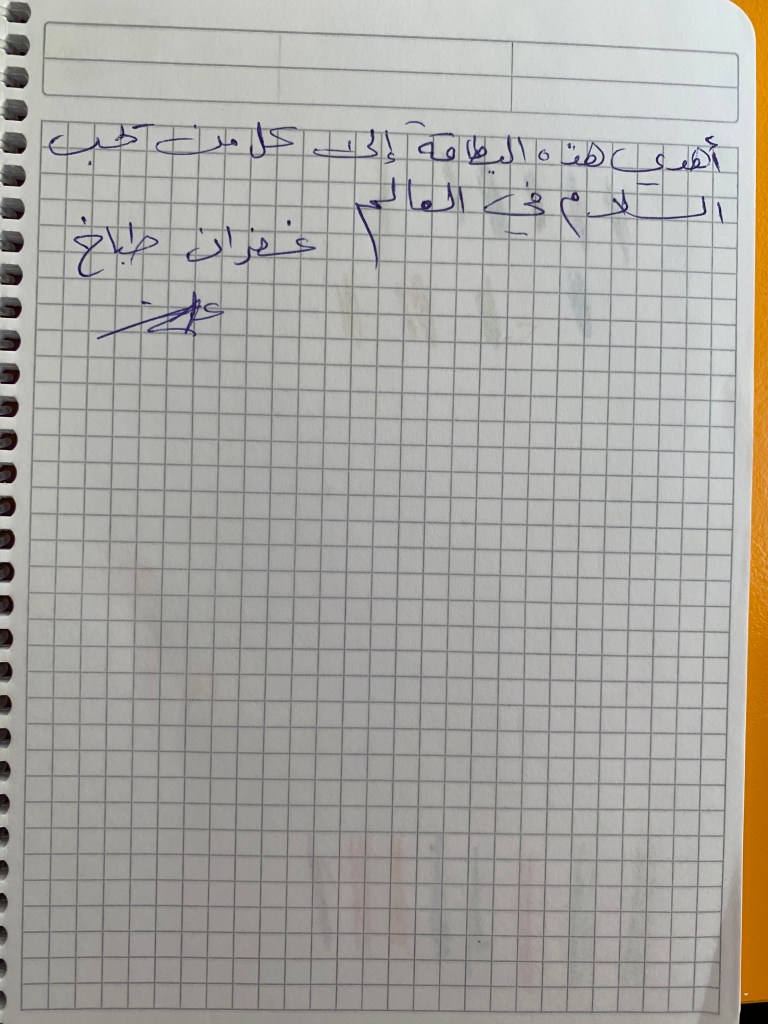 أهدي هذه البطاقة إلى كل من يحب
السلام في العالم
غفران طباخ